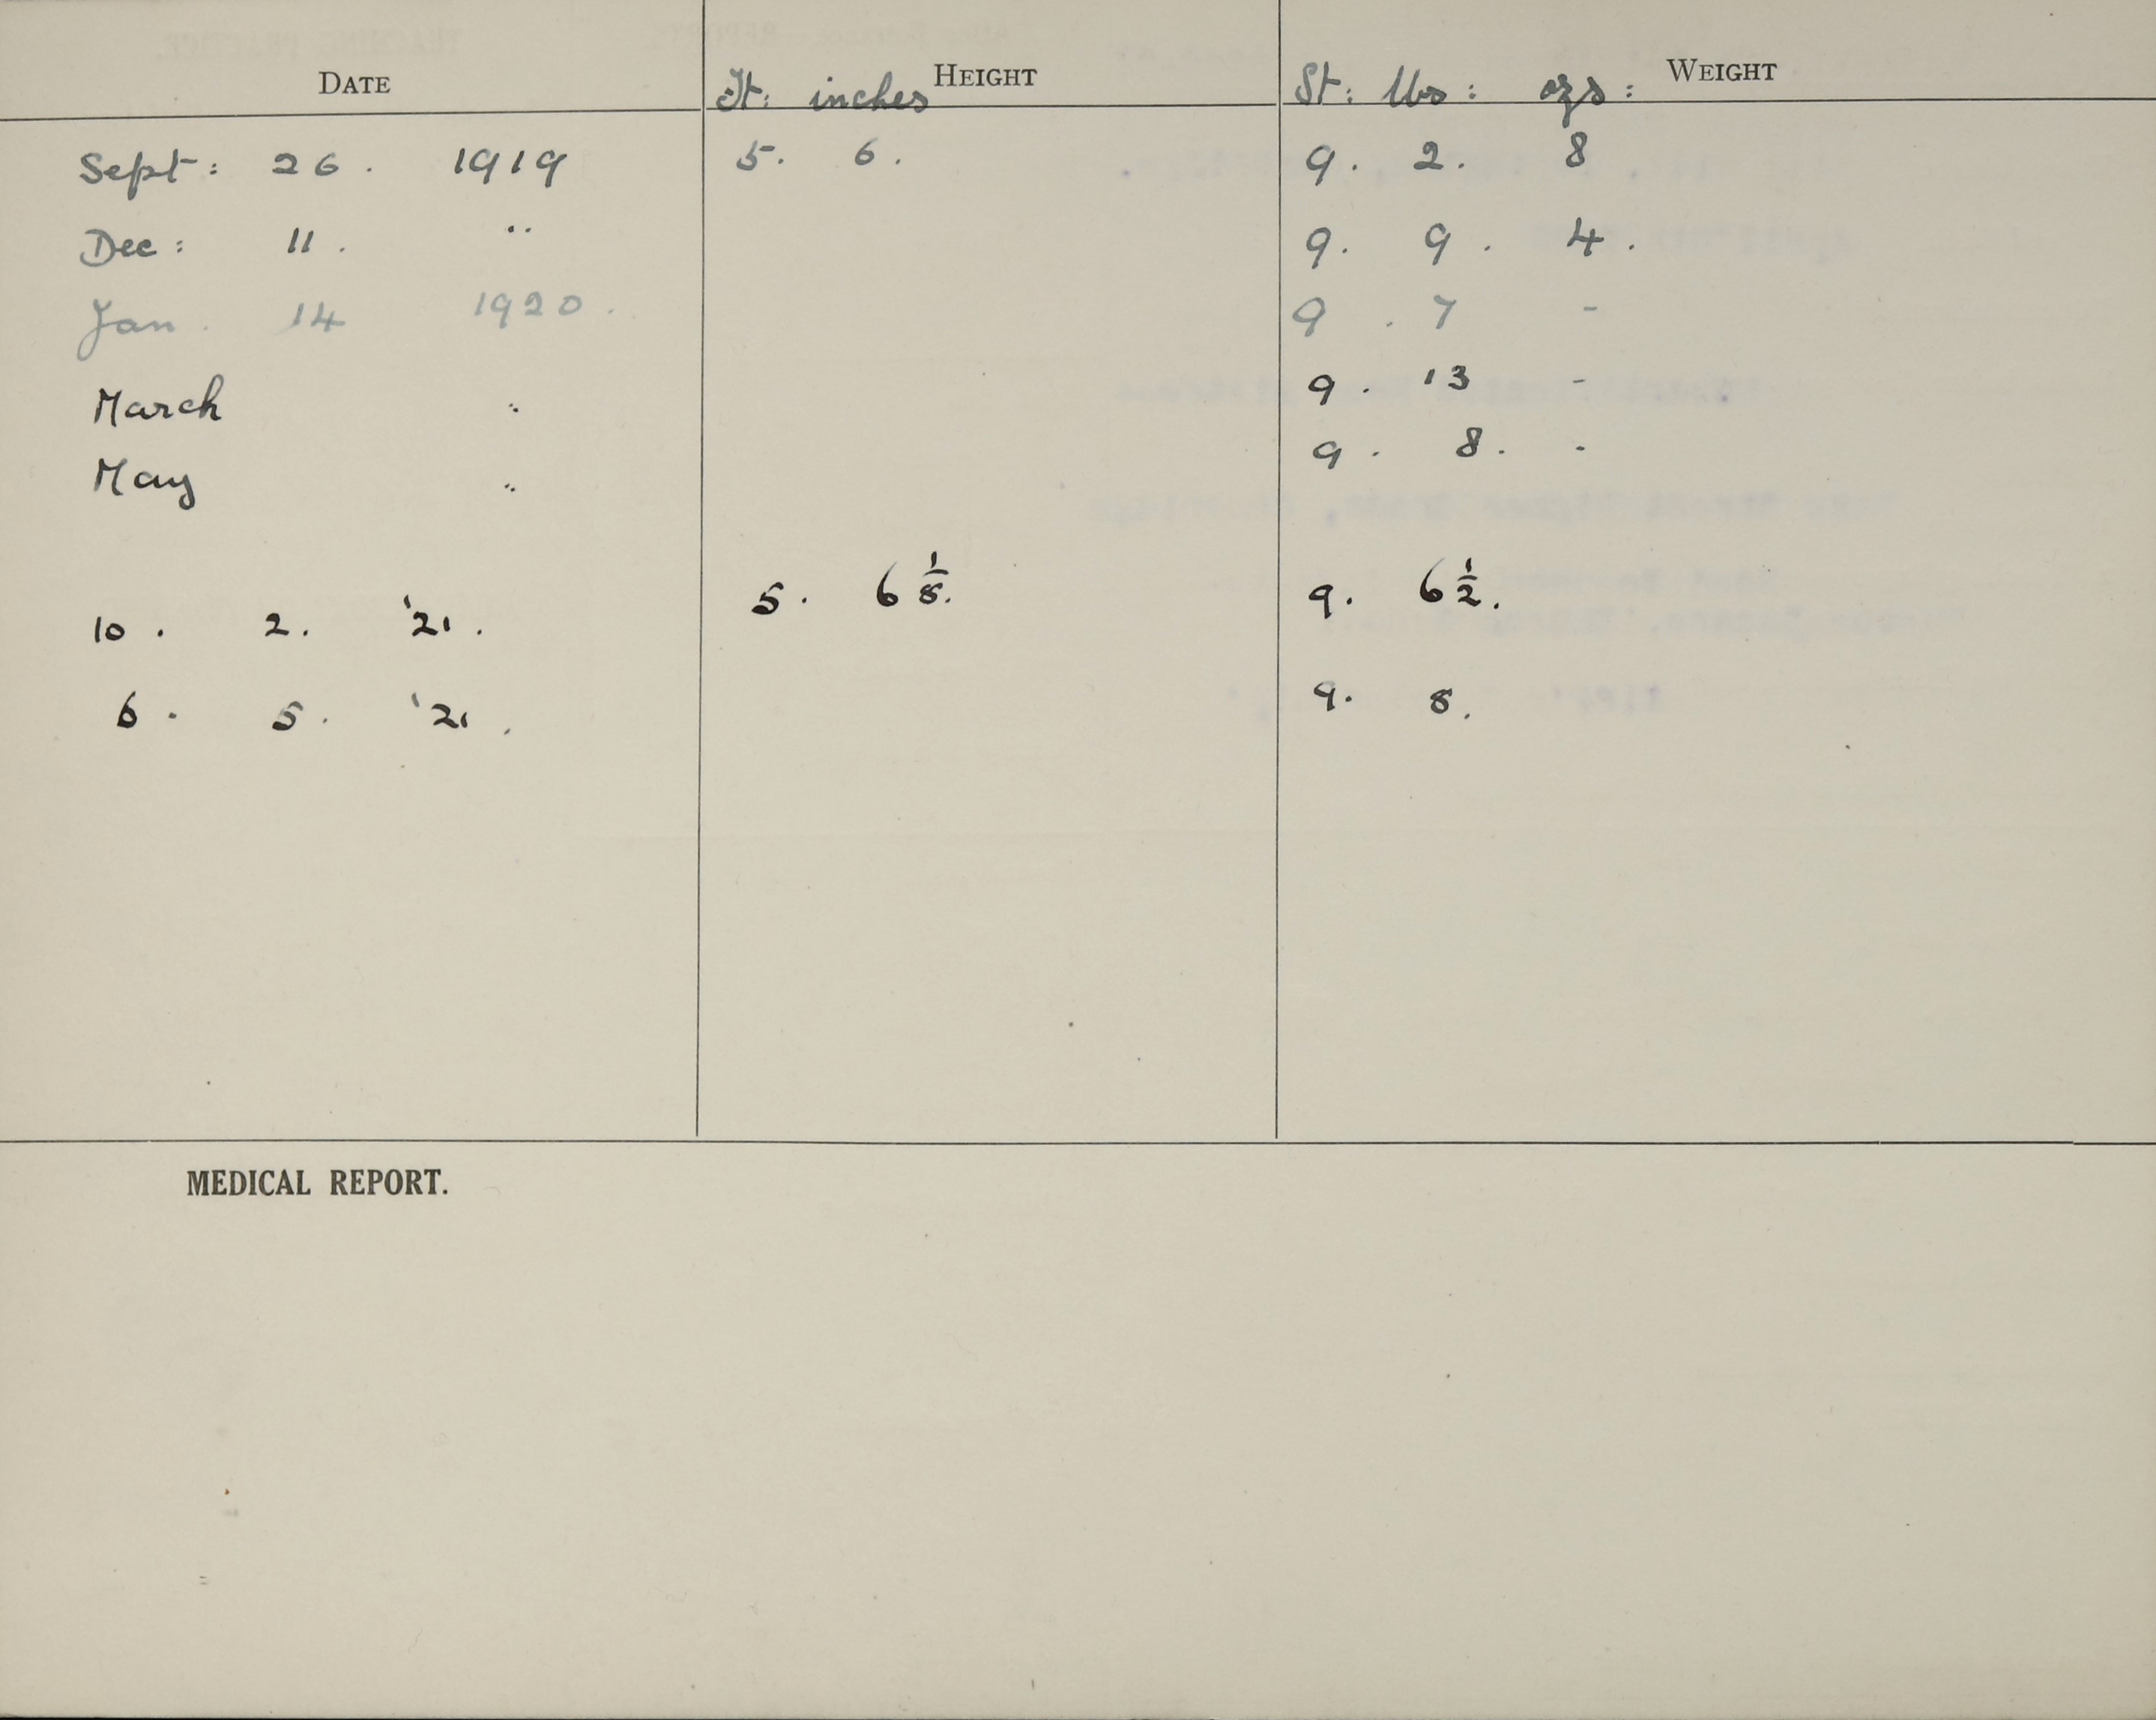 DATE Ft: inches HEIGHT St: lbs: ozs: WEIGHT
Sept: 26. 1919 5. 6. 9. 2. 8
Dec: 11. " 9. 9. 4.
Jan. 14 1920. 9. 7 -
March " 9. 13 -
May " 9. 8. -
10. 2. '21. 5. 6 1/8. 9. 6 1/2.
6. 5. '21. 9. 8.
MEDICAL REPORT.